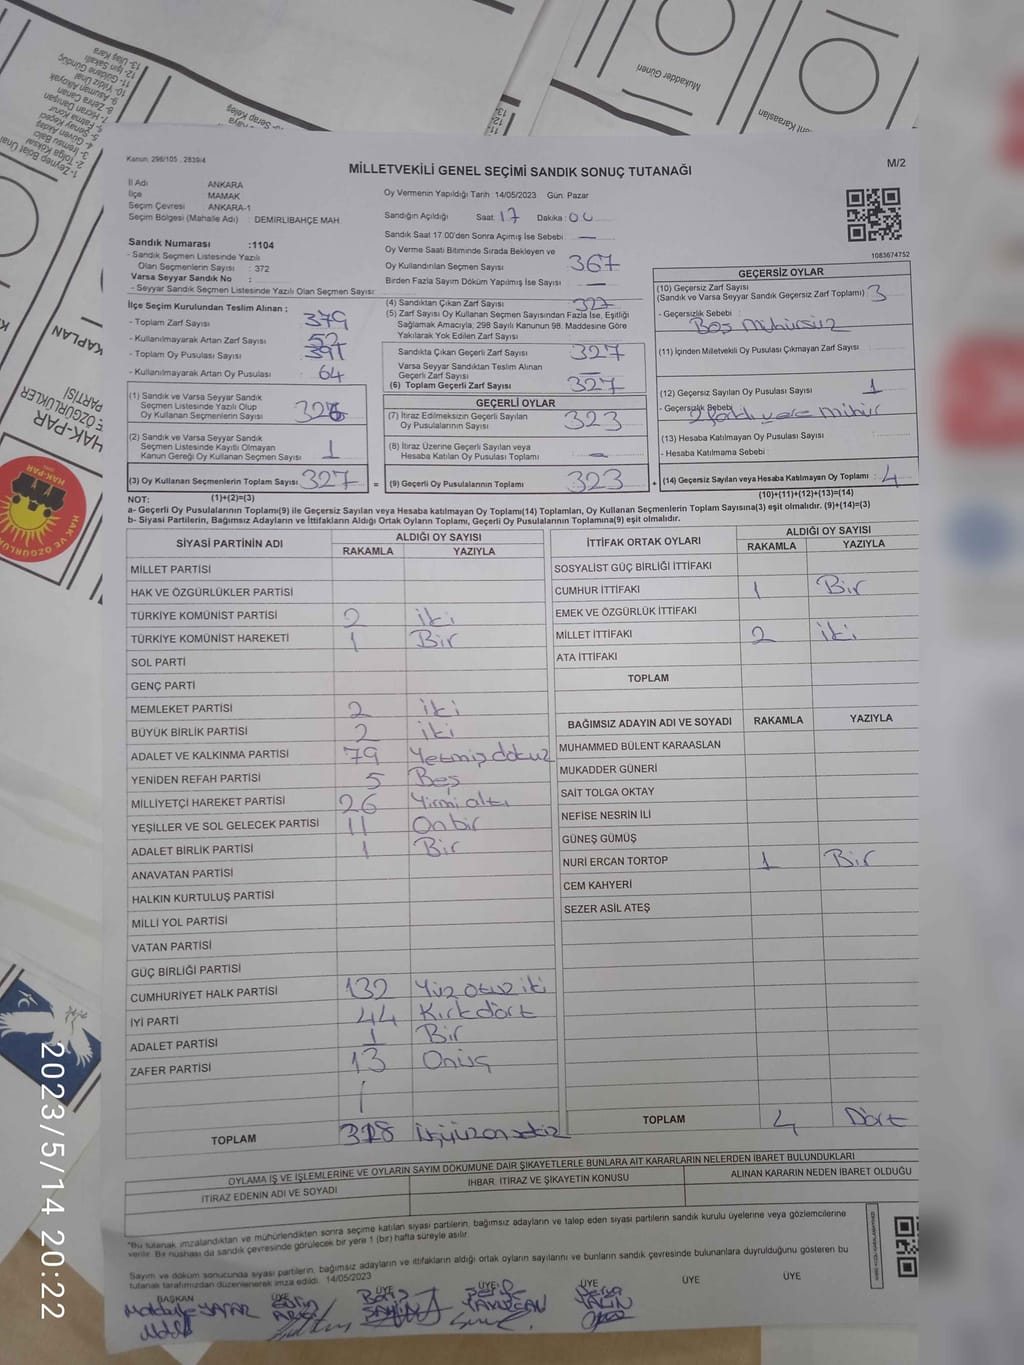 Kanun: 298/105 , 2839/4
MİLLETVEKİLİ GENEL SEÇİMİ SANDIK SONUÇ TUTANAĞI
M/2
İl Adı : ANKARA
İlçe : MAMAK
Seçim Çevresi : ANKARA-1
Seçim Bölgesi (Mahalle Adı) : DEMİRLİBAHÇE MAH
Sandık Numarası :1104
- Sandık Seçmen Listesinde Yazılı
Olan Seçmenlerin Sayısı : 372
Varsa Seyyar Sandık No :
- Seyyar Sandık Seçmen Listesinde Yazılı Olan Seçmen Sayısı:
Oy Vermenin Yapıldığı Tarih 14/05/2023 Gün: Pazar
Sandığın Açıldığı Saat: 17 Dakika: 00
Sandık Saat 17:00'den Sonra Açımış İse Sebebi: —
Oy Verme Saati Bitiminde Sırada Bekleyen ve
Oy Kullandırılan Seçmen Sayısı 367
Birden Fazla Sayım Döküm Yapılmış İse Sayısı —
1083674752
İlçe Seçim Kurulundan Teslim Alınan :
- Toplam Zarf Sayısı 379
- Kullanılmayarak Artan Zarf Sayısı 52
- Toplam Oy Pusulası Sayısı 391
- Kullanılmayarak Artan Oy Pusulası 64
(1) Sandık ve Varsa Seyyar Sandık
Seçmen Listesinde Yazılı Olup
Oy Kullanan Seçmenlerin Sayısı 326
(2) Sandık ve Varsa Seyyar Sandık
Seçmen Listesinde Kayıtlı Olmayan
Kanun Gereği Oy Kullanan Seçmen Sayısı 1
(3) Oy Kullanan Seçmenlerin Toplam Sayısı 327
(4) Sandıktan Çıkan Zarf Sayısı 327
(5) Zarf Sayısı Oy Kullanan Seçmen Sayısından Fazla İse, Eşitliği
Sağlamak Amacıyla; 298 Sayılı Kanunun 98. Maddesine Göre
Yakılarak Yok Edilen Zarf Sayısı
Sandıkta Çıkan Geçerli Zarf Sayısı 327
Varsa Seyyar Sandıktan Teslim Alınan
Geçerli Zarf Sayısı —
(6) Toplam Geçerli Zarf Sayısı 327
GEÇERLİ OYLAR
(7) İtiraz Edilmeksizin Geçerli Sayılan
Oy Pusulalarının Sayısı 323
(8) İtiraz Üzerine Geçerli Sayılan veya
Hesaba Katılan Oy Pusulası Toplamı —
= (9) Geçerli Oy Pusulalarının Toplamı 323
GEÇERSİZ OYLAR
(10) Geçersiz Zarf Sayısı
(Sandık ve Varsa Seyyar Sandık Geçersiz Zarf Toplamı) 3
- Geçersizlik Sebebi :
Boş Mühürsüz
(11) İçinden Milletvekili Oy Pusulası Çıkmayan Zarf Sayısı
(12) Geçersiz Sayılan Oy Pusulası Sayısı 1
- Geçersizlik Sebebi
2 farklı yere mühür
(13) Hesaba Katılmayan Oy Pusulası Sayısı
- Hesaba Katılmama Sebebi :
+ (14) Geçersiz Sayılan veya Hesaba Katılmayan Oy Toplamı : 4
(10)+(11)+(12)+(13)=(14)
NOT: (1)+(2)=(3)
a- Geçerli Oy Pusulalarının Toplamı(9) ile Geçersiz Sayılan veya Hesaba katılmayan Oy Toplamı(14) Toplamları, Oy Kullanan Seçmenlerin Toplam Sayısına(3) eşit olmalıdır. (9)+(14)=(3)
b- Siyasi Partilerin, Bağımsız Adayların ve İttifakların Aldığı Ortak Oyların Toplamı, Geçerli Oy Pusulalarının Toplamına(9) eşit olmalıdır.
SİYASİ PARTİNİN ADI ALDIĞI OY SAYISI
RAKAMLA YAZIYLA
MİLLET PARTİSİ
HAK VE ÖZGÜRLÜKLER PARTİSİ
TÜRKİYE KOMÜNİST PARTİSİ 2 iki
TÜRKİYE KOMÜNİST HAREKETİ 1 Bir
SOL PARTİ
GENÇ PARTİ
MEMLEKET PARTİSİ 2 iki
BÜYÜK BİRLİK PARTİSİ 2 iki
ADALET VE KALKINMA PARTİSİ 79 Yetmiş dokuz
YENİDEN REFAH PARTİSİ 5 Beş
MİLLİYETÇİ HAREKET PARTİSİ 26 Yirmi altı
YEŞİLLER VE SOL GELECEK PARTİSİ 11 Onbir
ADALET BİRLİK PARTİSİ 1 Bir
ANAVATAN PARTİSİ
HALKIN KURTULUŞ PARTİSİ
MİLLİ YOL PARTİSİ
VATAN PARTİSİ
GÜÇ BİRLİĞİ PARTİSİ
CUMHURİYET HALK PARTİSİ 132 Yüz otuz iki
İYİ PARTİ 44 Kırkdört
ADALET PARTİSİ 1 Bir
ZAFER PARTİSİ 13 Onüç
TOPLAM 318
İTTİFAK ORTAK OYLARI ALDIĞI OY SAYISI
RAKAMLA YAZIYLA
SOSYALİST GÜÇ BİRLİĞİ İTTİFAKI
CUMHUR İTTİFAKI 1 Bir
EMEK VE ÖZGÜRLÜK İTTİFAKI
MİLLET İTTİFAKI 2 iki
ATA İTTİFAKI
TOPLAM
BAĞIMSIZ ADAYIN ADI VE SOYADI RAKAMLA YAZIYLA
MUHAMMED BÜLENT KARAASLAN
MUKADDER GÜNERİ
SAİT TOLGA OKTAY
NEFİSE NESRİN İLİ
GÜNEŞ GÜMÜŞ
NURİ ERCAN TORTOP 1 Bir
CEM KAHYERİ
SEZER ASİL ATEŞ
TOPLAM 4 Dört
OYLAMA İŞ VE İŞLEMLERİNE VE OYLARIN SAYIM DÖKÜMÜNE DAİR ŞİKAYETLERLE BUNLARA AİT KARARLARIN NELERDEN İBARET BULUNDUKLARI
İTİRAZ EDENİN ADI VE SOYADI İHBAR, İTİRAZ VE ŞİKAYETİN KONUSU ALINAN KARARIN NEDEN İBARET OLDUĞU
*Bu tutanak imzalandıktan ve mühürlendikten sonra seçime katılan siyasi partilerin, bağımsız adayların ve talep eden siyasi partilerin sandık kurulu üyelerine veya gözlemcilerine
verilir. Bir nüshası da sandık çevresinde görülecek bir yere 1 (bir) hafta süreyle asılır.
Sayım ve döküm sonucunda siyasi partilerin, bağımsız adayların ve ittifakların aldığı ortak oyların sayılarını ve bunların sandık çevresinde bulunanlara duyrulduğunu gösteren bu
tutanak tarafımızdan düzenlenerek imza edildi. 14/05/2023
BAŞKAN ÜYE ÜYE ÜYE ÜYE ÜYE ÜYE
2023/5/14 20:22
HAK-PAR
HAK VE ÖZGÜRLÜKLER
PARTİSİ
KAPLAN
Mukadder Güneri